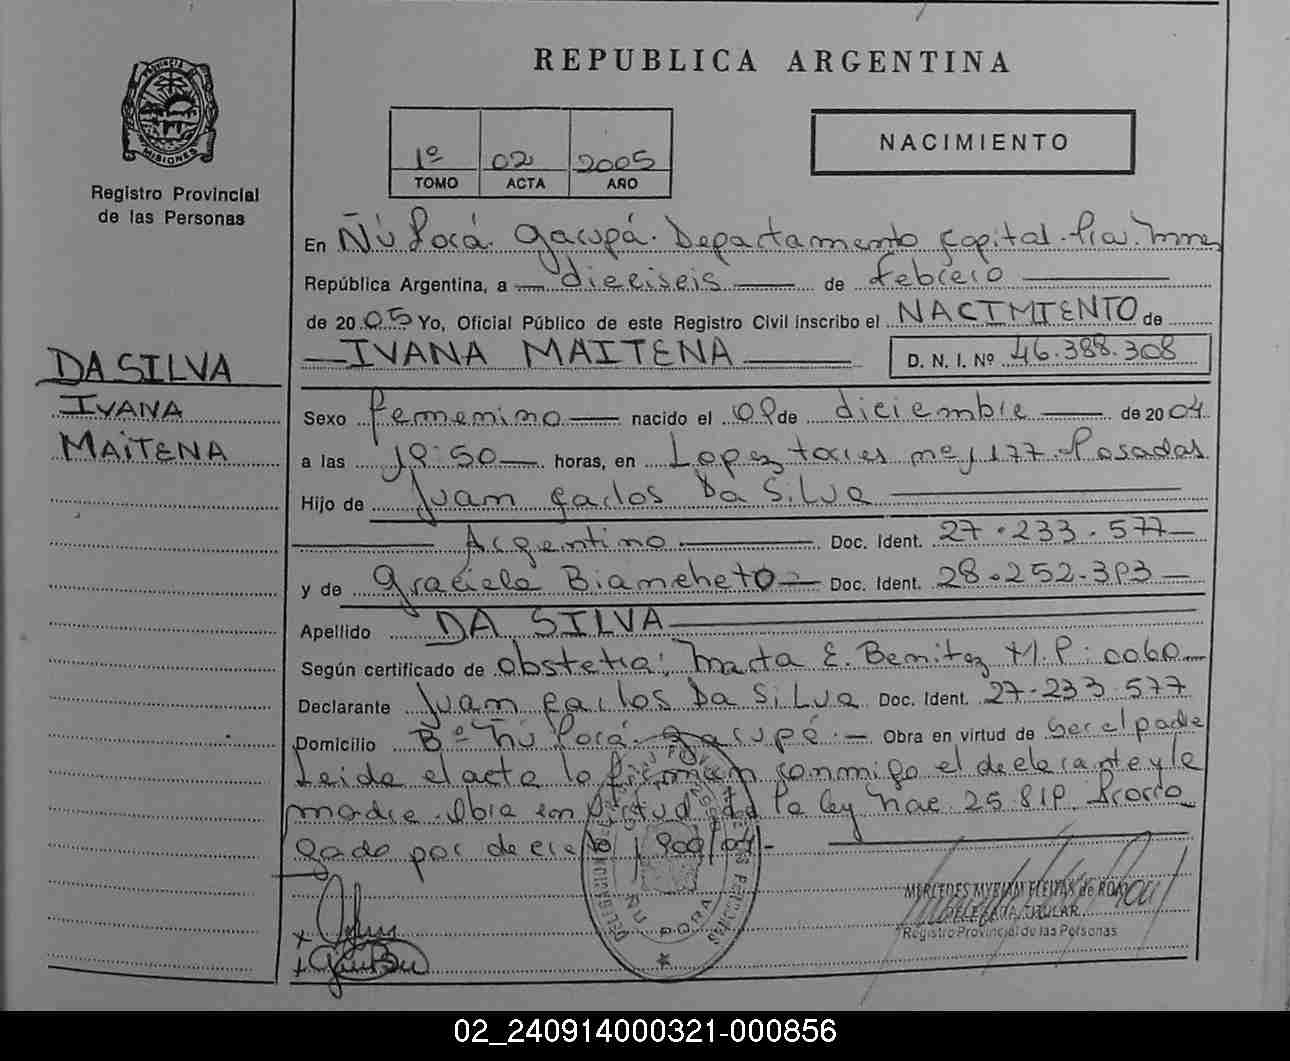 REPUBLICA ARGENTINA
PROVINCIA DE MISIONES
Registro Provincial
de las Personas
1º 02 2005
TOMO ACTA AÑO
NACIMIENTO
En Ñú Porá. Garupá. Departamento Capital. Pcia. Mnes
República Argentina, a dieciseis de febrero
de 2005 Yo, Oficial Público de este Registro Civil inscribo el NACIMIENTO de
IVANA MAITENA D. N. I. Nº 46.388.308
DA SILVA
IVANA
MAITENA
Sexo femenino nacido el 09 de diciembre de 2004
a las 19:50 horas, en Lopez torres 1177. Posadas
Hijo de Juan Carlos Da Silva
Argentino Doc. Ident. 27.233.577
y de Graciela Biancheto Doc. Ident. 28.252.393
Apellido DA SILVA
Según certificado de obstetra: Marta E. Benitez M.P: 0060
Declarante Juan Carlos Da Silva Doc. Ident. 27-233.577
Domicilio Bº Ñú Porá. Garupá. Obra en virtud de ser el padre
Leida el acta la firman conmigo el declarante y la
madre. Obra en virtud de la ley Nac. 25.819. Prorro
gado por decreto
ÑU PORA
MERCEDES MYRIAM FLEITAS de ROA
DELEGADA TITULAR
Registro Provincial de las Personas
02_240914000321-000856